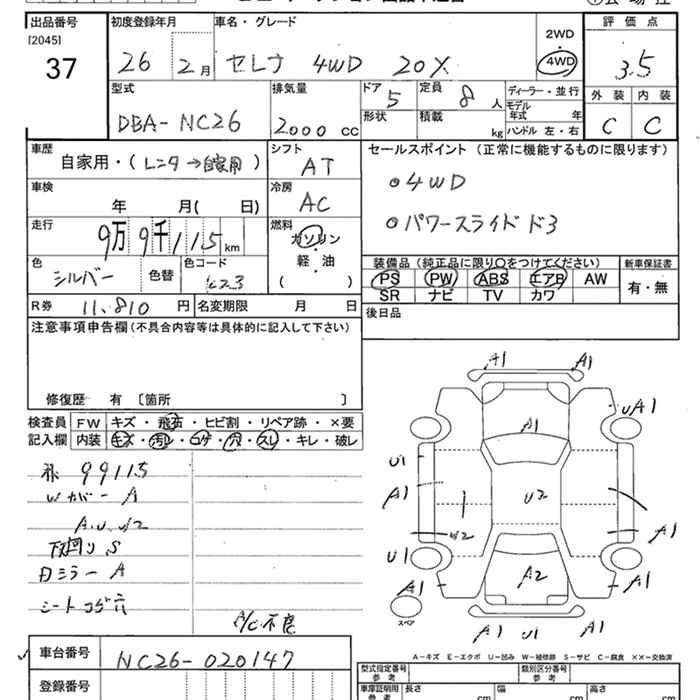 出品番号 初度登録年月 車名・グレード 評価点
[2045]
37 26 2月 セレナ 4WD 20X 2WD 4WD 3.5
外装 内装
C C
型式 排気量 ドア 定員 ディーラー・並行
DBA-NC26 2000 cc 5 8 人 モデル年式 年
形状 積載 kg ハンドル 左・右
車歴 シフト セールスポイント (正常に機能するものに限ります)
自家用・(レンタ→自家用) AT
車検 冷房
年 月( 日) AC
●4WD
●パワースライドド3
走行 燃料
9万9千115km ガソリン・軽・油
( )
色 色替 色コード
シルバー K23
装備品 (純正品に限り○をつけてください) 新車保証書
PS PW ABS エアB AW 有・無
SR ナビ TV カワ
R券 11,810 円 名変期限 月 日
後日品
注意事項申告欄(不具合内容等は具体的に記入して下さい)
修復歴 有 〔箇所 〕
検査員 FW キズ・飛石・ヒビ割・リペア跡・×要
記入欄 内装 キズ・汚レ・コゲ・穴・スレ・キレ・破レ
99115
Wカバー A
A,U,W2
下廻り S
刀ミラー A
シートコゲ穴
A/C不良
A1 A1
A1 UA1
U1
A1 U2
W2 A1
U1
A1 A2 A1
スペア
A1 U1 A1
A-キズ E-エクボ U-凹み W-補修跡 S-サビ C-腐食 XX-交換済
車台番号 NC26-020147
登録番号
型式指定番号 類別区分番号
参考 車庫証明用 長さ cm 幅 cm 高さ cm